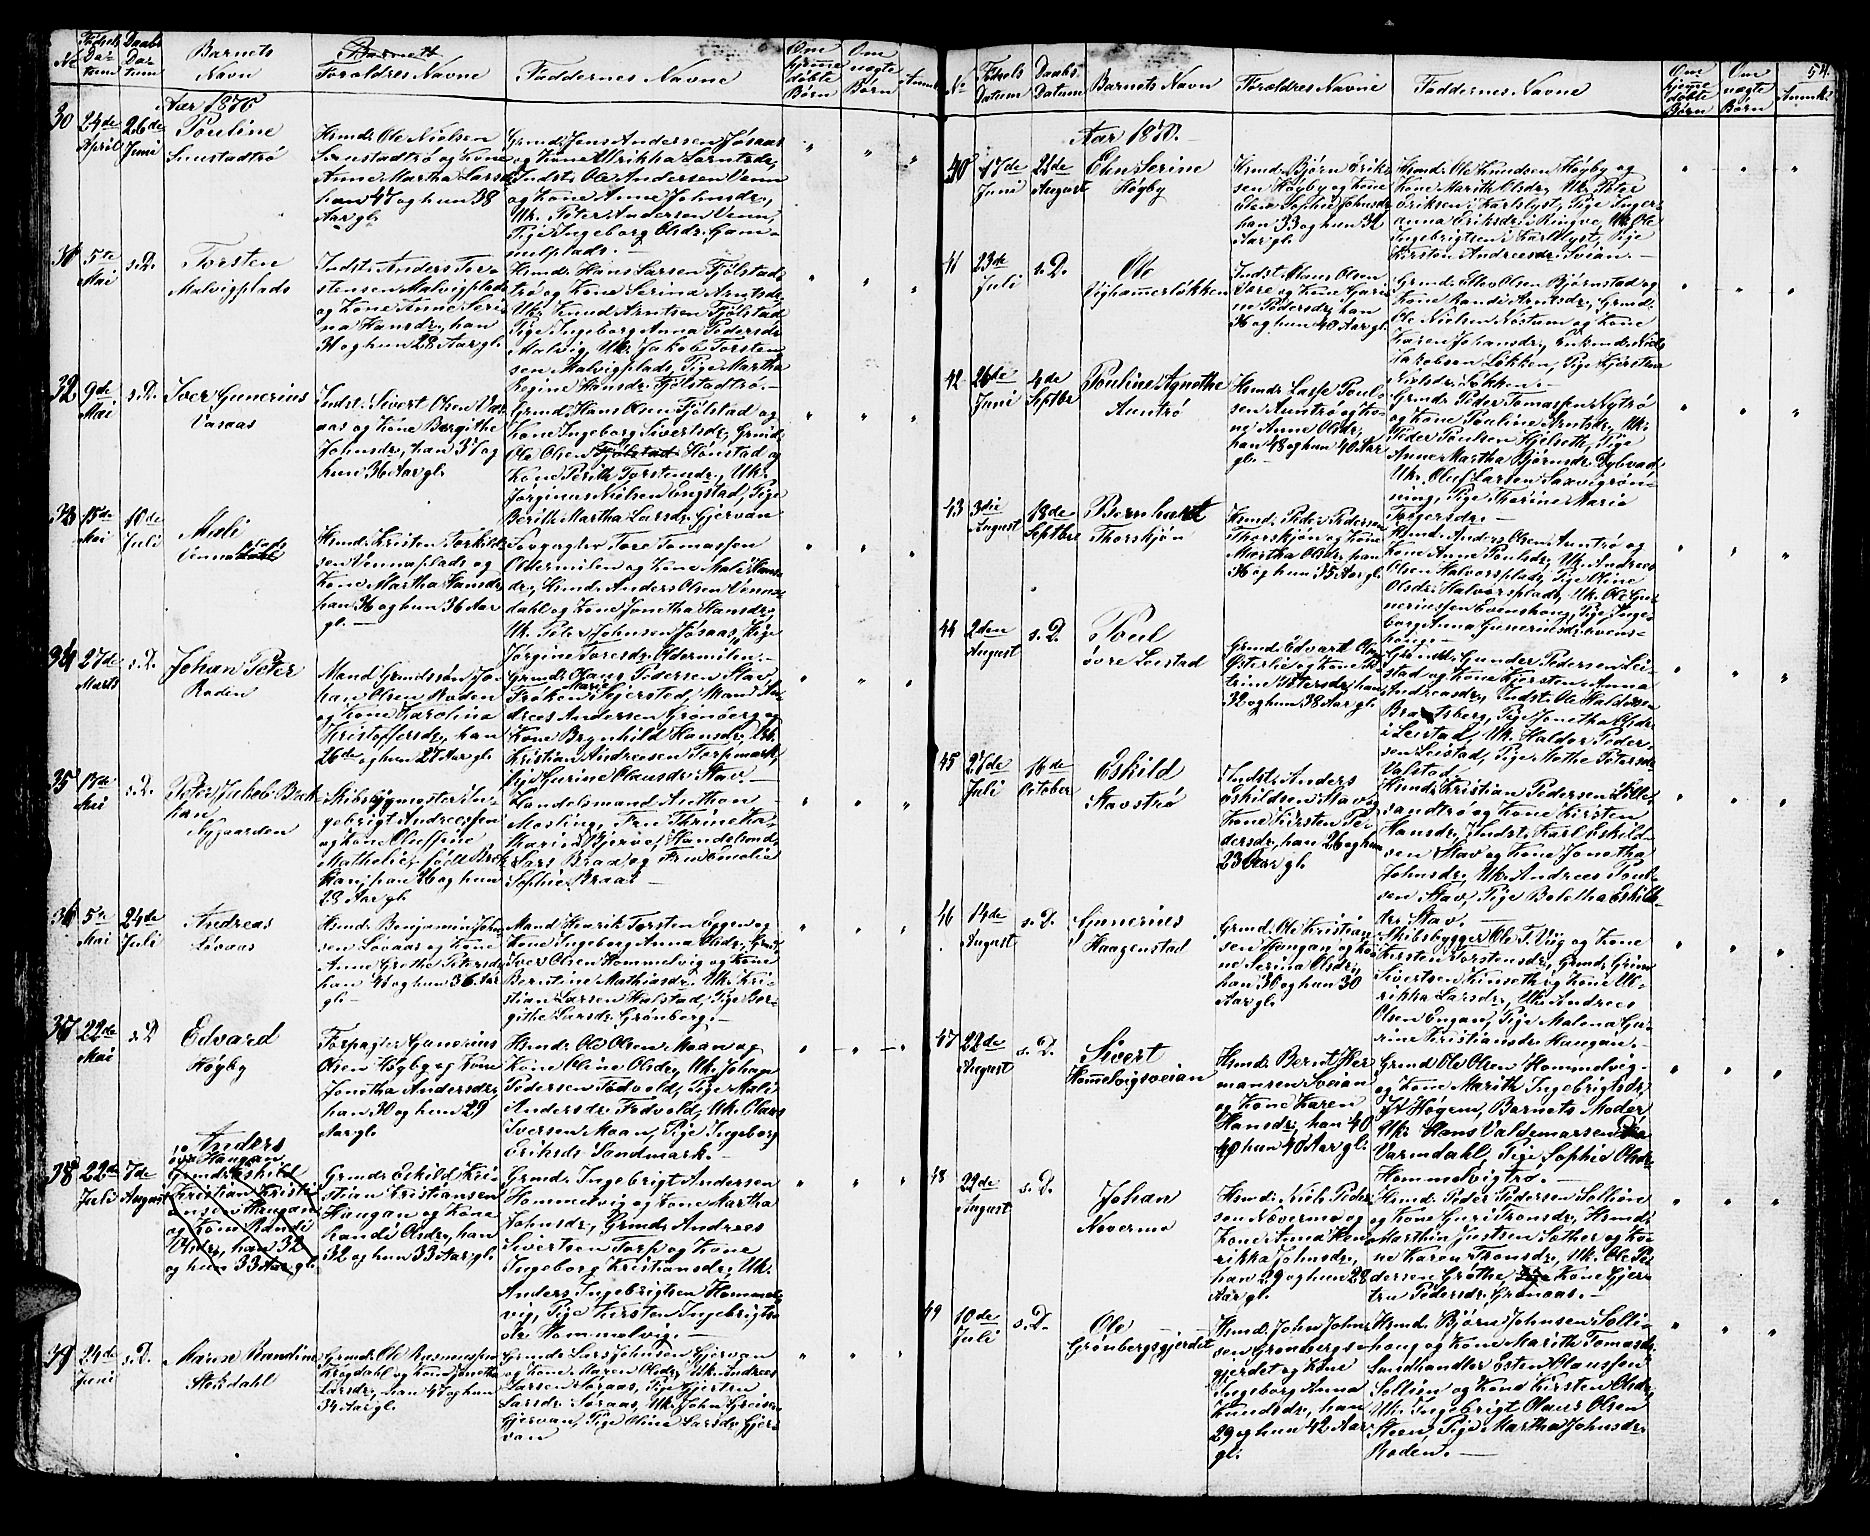 No
Fødsels Datum
Daabs Datum
Barnets Navn
Barnets
Foreldres Navne
Faddernes Navne
Om hjemmedøbte Børn
Om uægte Børn
Anmk.
Aar 1870
30
24de April
26de Juni
Pouline
Smistadtrø
Husmd: Ole Nielsen
og Kone
Anne Martha Larsdr
han 47 og hun 38
Aar gl.
Grmd: Jens Andersen Jøsaas
og Kone Ulrikka Larntsdr,
Indst: Ole Andersen Venn
og Kone Anne Johnsdr,
Uk: Peter Andersen Venn,
Pige Ingeborg Olsdr. Gam-
melplads.
31
5te Mai
s.D.
Torsten
Malvigplads
Indst: Anders Tor-
stensen Malvigplads
og Kone Anne Seri-
na Hansdr, han
31 og hun 28 Aar gl.
Husmd: Hans Larsen Fjølstad-
trø og Kone Serina Arntsdr,
Uk: Knud Arntsen Fjølstad
Pige Ingeborg Anna Pedersdr
Malvig, Uk: Jakob Torsten-
sen Malvigplads, Pige Martha
Regine Hansdr. Fjølstadtrø.
32
9de Mai
s.D.
Iver Gunerius
Vasaas
Indst: Sivert Olsen Vas-
aas og Kone Bergithe
Johnsdr, han 37 og
hun 36 Aar gl.
Grmd: Hans Olsen Fjølstad og
Kone Ingeborg Sivertsdr, Grmd:
Ole Olsen Fjølstad Hønstad og
Kone Berith Torstensdr, Uk:
Jørginus Nielsen Engstad, Pige
Berith Martha Larsdr. Gjervan
33
15de Mai
10de Juli
Mali
Vennaplads
Husmd: Kristen Torkild-
sen Vennaplads og
Kone Martha Hansdr
han 36 og hun 36 Aar
gl.
Tore Tomassen
Oldermelen og Kone Mali Hans-
dr, Husmd: Anders Olsen Venna-
dahl og Kone Jonetha Hansdr,
Uk: Peter Johnsen Jøsaas, Pige
Jørgine Toresdr. Oldermelen.
34
27de Marts
s.D.
Johan Peter
Roden
Mand Grmdssøn Jo-
han Olsen Roden
og Kone Karolina
Kristoffersdr, han
26 og hun 27 Aar gl.
Grmd: Claus Pedersen Stav,
Frøken Marie Skjerstad, Mand An-
dreas Andersen Grønberg og
Kone Brynhild Hansdr, Uk:
Kristian Andreasen Torpmark,
Pige Gurine Clausdr. Stav
35
13de Mai
s.D.
Peter Jakob Brek-
kan,
Nygaarden
Skibsbygmester In-
gebrigt Andreassen
og Kone Oluffine
Mathelie, født Brek-
kan, han 26 og hun
28 Aar gl.
Handelsmand Anthon
Mosling, Fru Thrine Ka-
Marie Bjerve, Handelsmd:
Lars Braa og Fru Emelia
Sophie Braa.
36
5te Mai
24de Juli
Andreas
Løvaas
Husmd: Benjamin John-
sen Løvaas og Kone
Anne Grethe Petersdr
han 46 og hun 36 Aar
gl.
Mand Henrik Torsten Eggen og
Kone Ingeborg Anna Olsdr, Grmd:
Iver Olsen Hommelvig og Kone
Berntine Mathiasdr, Uk: Kri-
stian Larsen Halstad, Pige Ber-
githe Larsdr. Grønberg.
37
22de Mai
s.D.
Edvard
Høyby
Forpagter Gunerius
Olsen Høyby og Kone
Jonetha Andersdr
han 30 og hun 29
Aar gl.
Husmd: Ole Olsen Moan og
Kone Oline Olsdr, Uk: Johan
Pedersen Fodvold, Pige Mali
Andersdr. Fodvold, Uk: Claus
Iversen Moan, Pige Ingeborg
Eriksdr. Sandmark.
38
22de Juli
7de August
Anders
Haugan
Grmd: Eskild
Kristian Kristi-
ansen Haugan
og Kone Randi
Olsdr, han 32
og hun 33 Aar gl.
Grmd: Eskild Kri-
stian Kristiansen
Haugan og Kone
Randi Olsdr, han
32 og hun 33 Aar gl.
Grmd: Ingebrigt Andersen
Hommelvig og Kone Martha
Johnsdr, Grmd: Andreas
Sivertsen Torp og Kone
Ingeborg Kristiansdr, Uk:
Anders Ingebrigtsen Hommel-
vig, Pige Kirsten Ingebrigts-
dr. Hommelvig.
39
24de Juni
s.D.
Maren Randine
Stokdahl
Grmd: Ole Rasmussen
Krogdahl og Kone Jonetha
Larsdr, han 47 og hun
34 Aar gl.
Grmd: Lars Johnsen Gjervan
og Kone Maren Olsdr, Uk: Andreas
Larsen Soraas, Pige Gjertru
Larsdr. Soraas, Uk: John Greisen
Gjervan, Pige Oline Larsdr. Gjer-
van
54.
No
Fødsels Datum
Daabs Datum
Barnets Navn
Forældres Navne
Faddernes Navne
Om hjemmedøbte Børn
Om uægte Børn
Anmk.
Aar 1870.
40
17de Juni
21de August
Elen Serine
Høyby
Husmd: Bjørn Erik-
sen Høyby og Kone
Elen Sophie Johnsdr
han 33 og hun 31
Aar gl.
Husmd: Ole Knudsen Høyby og
Kone Marith Olsdr, Uk: Peter
Eriksen i Karlslyst, Pige Inger-
anna Eriksdr. i Ringve, Uk: Ole
Ingebrigtsen i Karlslyst, Pige
Kirsten Andreasdr. Sveian.
41
23de Juli
s.D.
Ole
Sighammerløkken
Indst: Claus Olsen
Vare og Kone Guri-
ne Pedersdr, han
36 og hun 40 Aar gl.
Grmd: Elling Olsen Bjørnstad og
Kone Randi Arntsdr, Grmd:
Ole Nielsen Nøstum og Kone
Karen Johansdr, Enkemd: Nils
Jakobsen Løkken, Pige Kjerstina
Nielsdr. Løkken.
42
26de Juni
4de Septbr
Pouline Agnethe
Auntrø
Husmd: Lasse Pouls-
en Auntrø og Ko-
ne Anne Olsdr,
han 48 og hun 40 Aar
gl.
Grmd: Peder Tomassen Nytrø
og Kone Pouline Arntsdr, Uk:
Peder Poulsen Hjelseth, Pige
Anne Martha Bjørnsdr. Dybvad,
Uk: Oluf Larsen Saxvigrøn-
ning, Pige Therine Maria
43
3die August
18de Septbr
Bernhard
Thorshjøn
Husmd: Peder Pedersen
Thorshjøn og Kone
Martha Olsdr, han
36 og hun 35 Aar gl.
Husmd: Anders Olsen Auntrø og
Kone Anne Poulsdr, Uk: Andreas
Olsen Halvorsplads, Pige Oline
Olsdr. Halvorsplads, Uk: Ole Gun-
neriussen Evenshoug, Pige Inge-
borg Anna Guneriusdr. Evens-
houg.
44
2den August
s.D.
Poul
øvre Leistad
Grmd: Edvart Olsen
Østerlie og Kone Ka-
trine Petersdr, han
32 og hun 38 Aar gl.
Grmd: Gunder Pedersen Lei-
stad og Kone Kjersten Anna
Andreasdr, Indst: Ole Haldorsen
Bratsberg, Pige Jonetha Olsdr
i Leistad, Uk: Haldor Peder-
sen Leistad, Pige Mette Petersdr
Valstad.
45
27de Juli
16de October
Eskild
Stavstrø
Indst: Anders
Eskildsen Stav og
Kone Kirsten Pe-
dersdr, han 26 og hun
23 Aar gl.
Husmd: Kristian Pedersen Lille-
sandtrø og Kone Kirsten
Hansdr, Indst: Karl Eskild-
sen Stav og Kone Jonetha
Johnsdr, Uk: Andreas Poul-
sen Stav, Pige Boletha Eskilds-
dr. Stav.
46
14de August
s.D.
Gunerius
Haugenstad
Grmd: Ole Kristian-
sen Haugan og Ko-
ne Serina Olsdr,
han 36 og hun 30
Aar gl.
Skibsbygger Ole T. Viig og Kone
Kirsten Torstensdr, Grmd: Grim
Sivertsen Kinseth og Kone Ul-
rikka Larsdr, Uk: Andreas
Olsen Engan, Pige Malena Gu-
rine Kristiansdr. Haugan.
47
22de August
s.D.
Sivert
Hommelvigsveian
Husmd: Bernt Her-
mansen Sveian
og Kone Karen
Hansdr, han 40
og hun 40 Aar gl.
Grmd Ole Olsen Hommelvig
og Kone Marith Ingebrigtsdr,
Høgen, Barnets Moder
Uk: Hans Valdemarsen
Varmdahl, Pige Sophie Olsdr
Hommelvigtrø.
48
29de August
s.D.
Johan
Neverma
Husmd: Niels Peder-
sen Neverma og
Kone Anna Hen-
rikka Johnsdr,
han 29 og hun 28
Aar gl.
Husmd: Peder Pedersen Sollien
og Kone Guri Tronsdr, Husmd:
Marthin Justsen Sæther og Ko-
ne Karen Tronsdr, Uk: Ole Pe-
dersen Grøthe, Kone Gjer-
tru Pedersdr. Grønaas.
49
10de Juli
s.D.
Ole
Grønbergsgjerdet
Husmd: John John-
sen Grønbergs-
gjerdet og Kone
Ingeborg Anna
Knudsdr, han
29 og hun 42 Aar
gl.
Husmd: Bjørn Johnsen Solli-
houg og Kone Marith Tomasdr,
Landhandler Esten Claussen
Sollien og Kone Kirsten Olsdr,
Uk: Ingebrigt Claus Olsen
Steen, Pige Martha Johnsdr.
Roden.